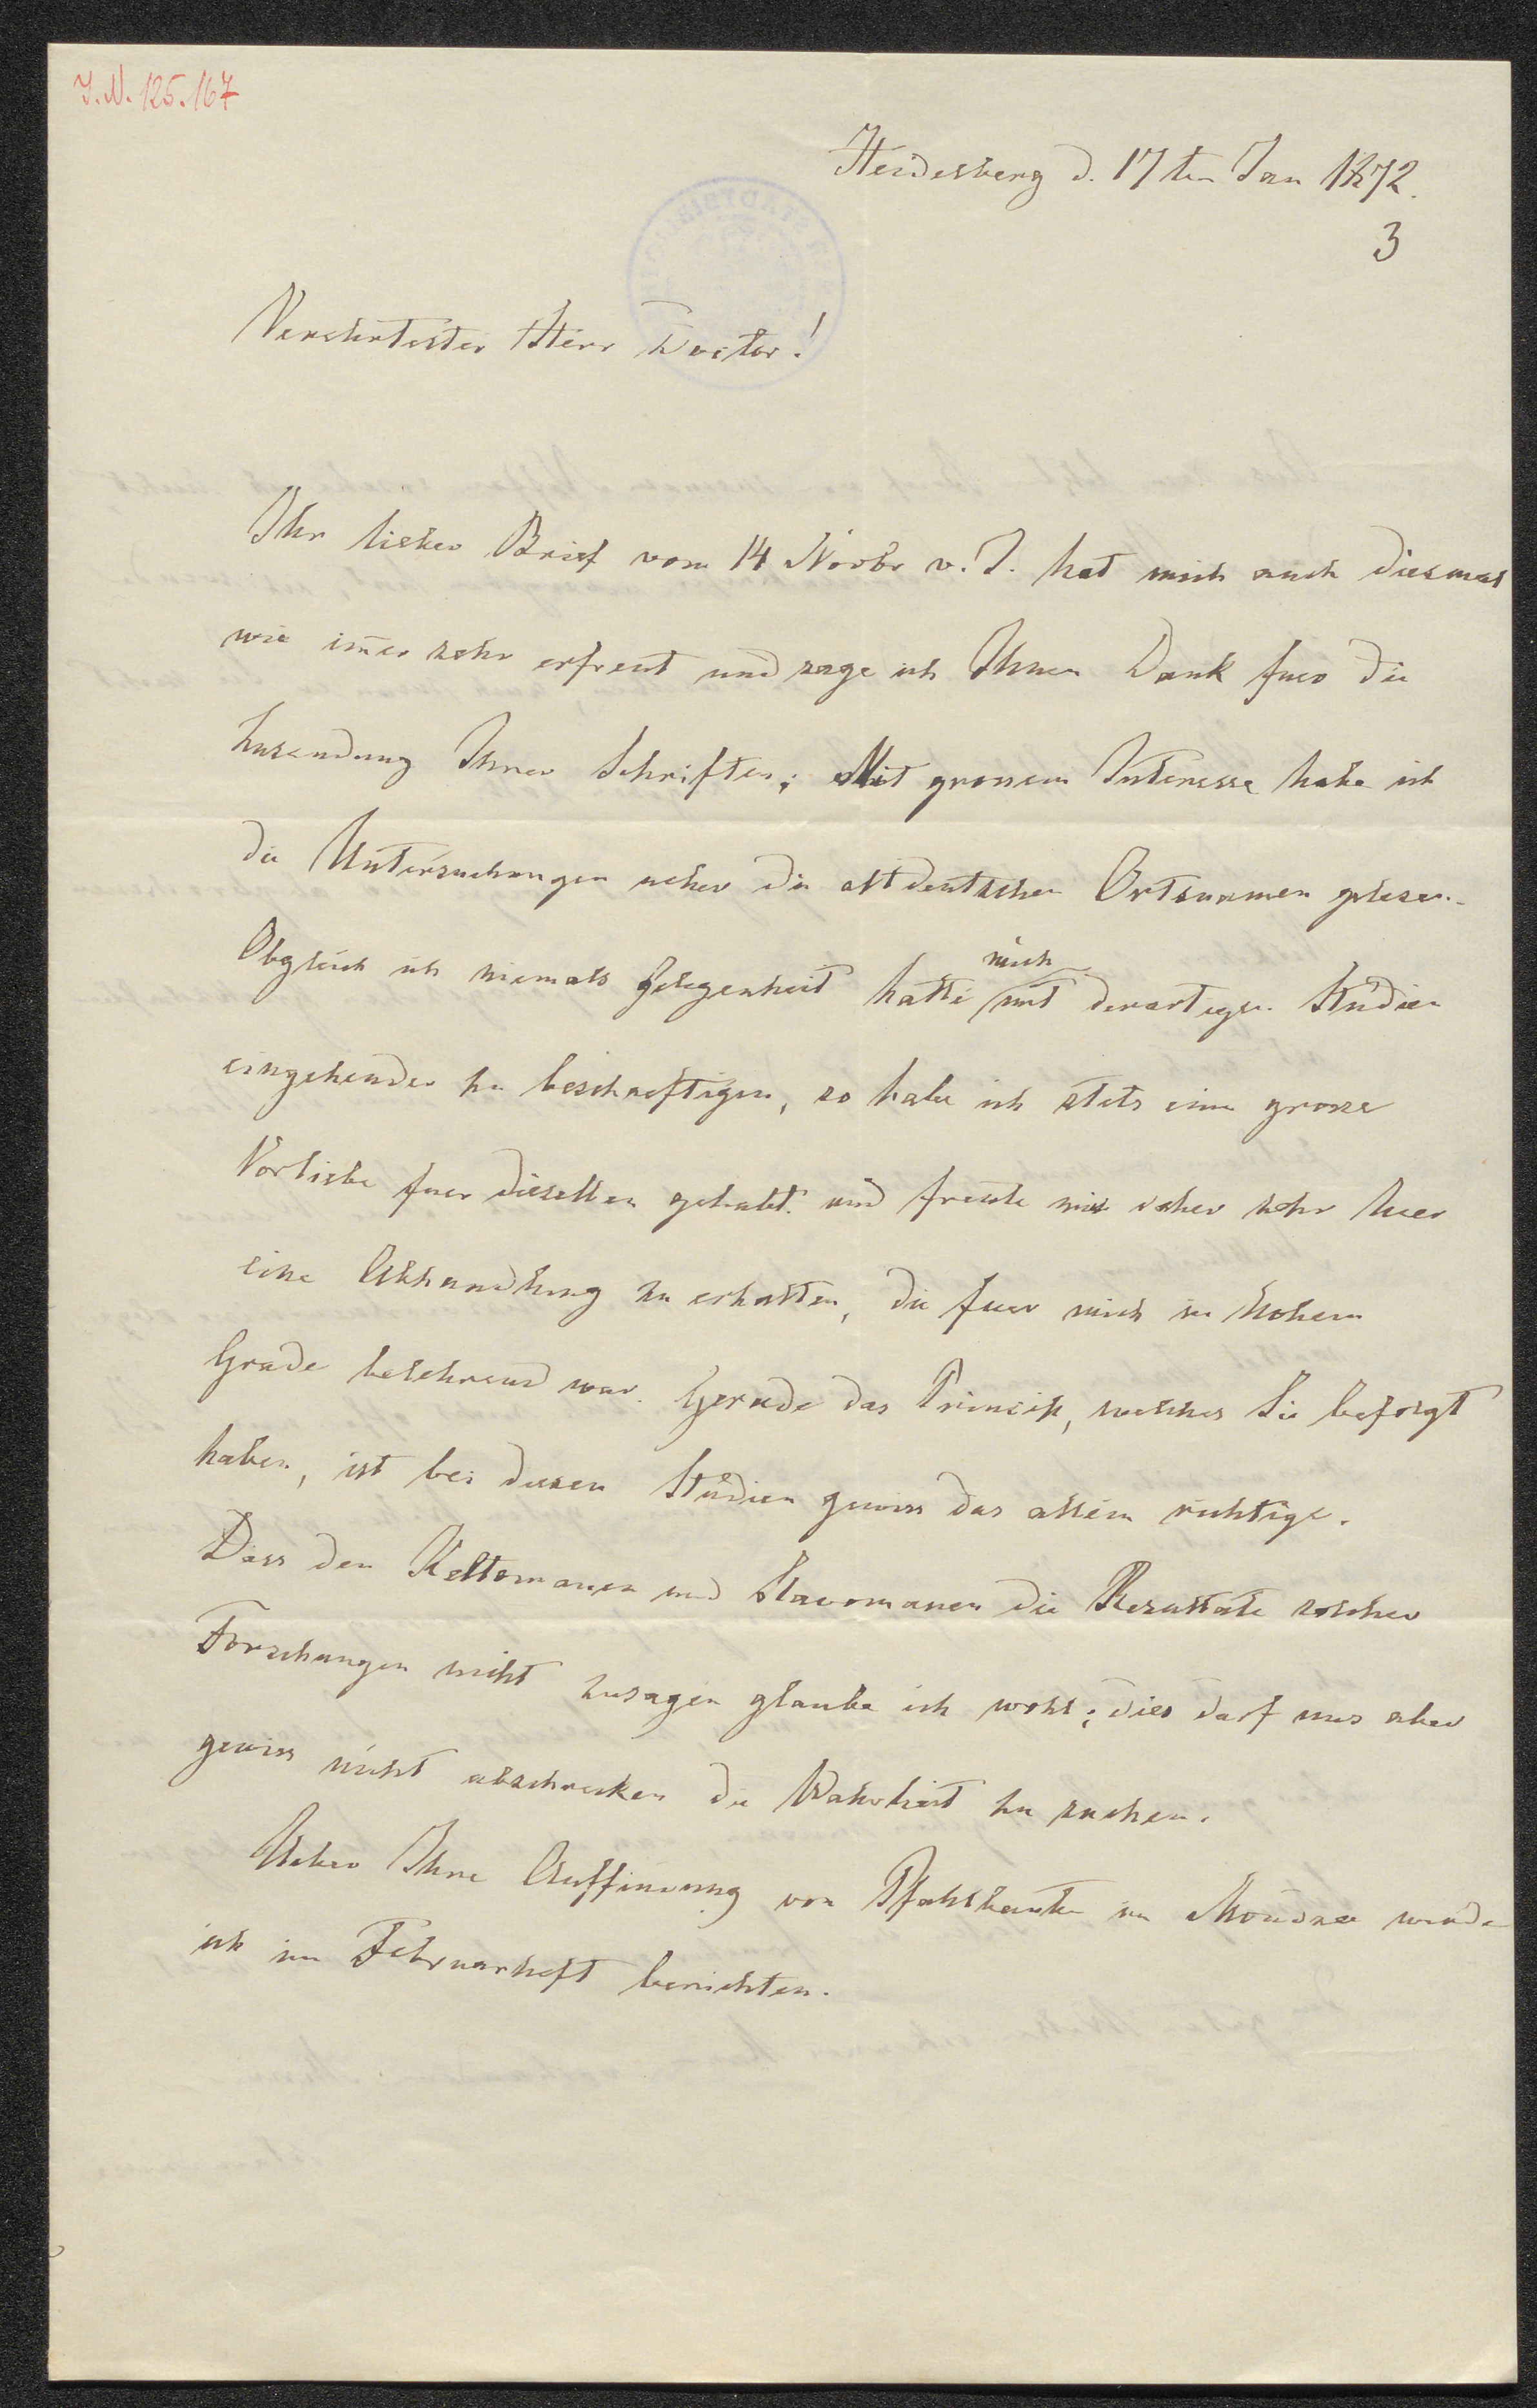 I.N. 125.167
Heidelberg d. 17ten Jan 1872.
3
Verehrtester Herr Doctor!
Ihr lieber Brief vom 14 Novbr v. J. hat mich auch diesmal
wie im̅er sehr erfreut und sage ich Ihnen Dank fuer die
Zusendung Ihrer Schriften; Mit grossem Interesse habe ich
die Untersuchungen ueber die altdeutschen Ortsnamen gelesen.
Obgleich ich niemals Gelegenheit hatte mich mit derartigen Studien
eingehender zu beschaeftigen, so habe ich stets eine grosse
Vorliebe fuer dieselben gehabt und freute mich daher sehr hier
eine Abhandlung zu erhalten, die fuer mich in hohem
Grade belehrend war. Gerade das Princip, welches Sie befolgt
haben, ist bei diesen Studien gewiss das allein richtige.
Dass den Keltomanen und Slavomanen die Resultate solcher
Forschungen nicht zusagen glaube ich wohl; dies darf uns aber
gewiss nicht abschrecken die Wahrheit zu suchen.
Ueber Ihre Auffindung von Pfahlbauten im Mondsee werde
ich im Februarheft berichten.